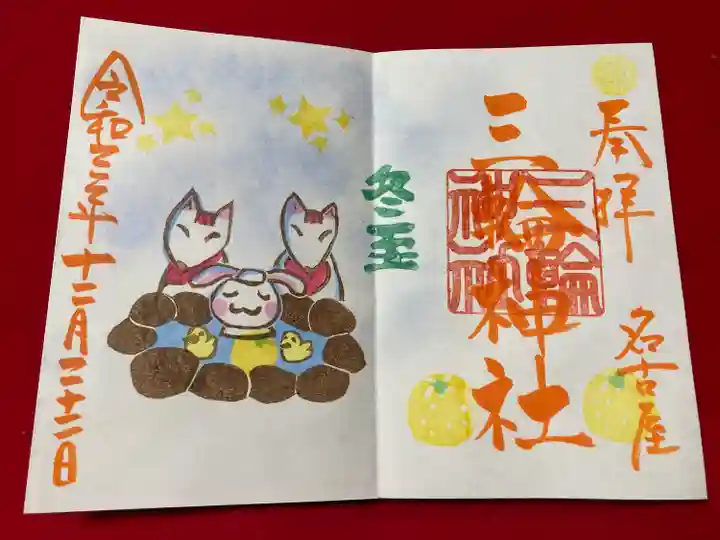 奉拝
名古屋
三輪神社
三輪
神社
冬至
令和三年十二月二十二日